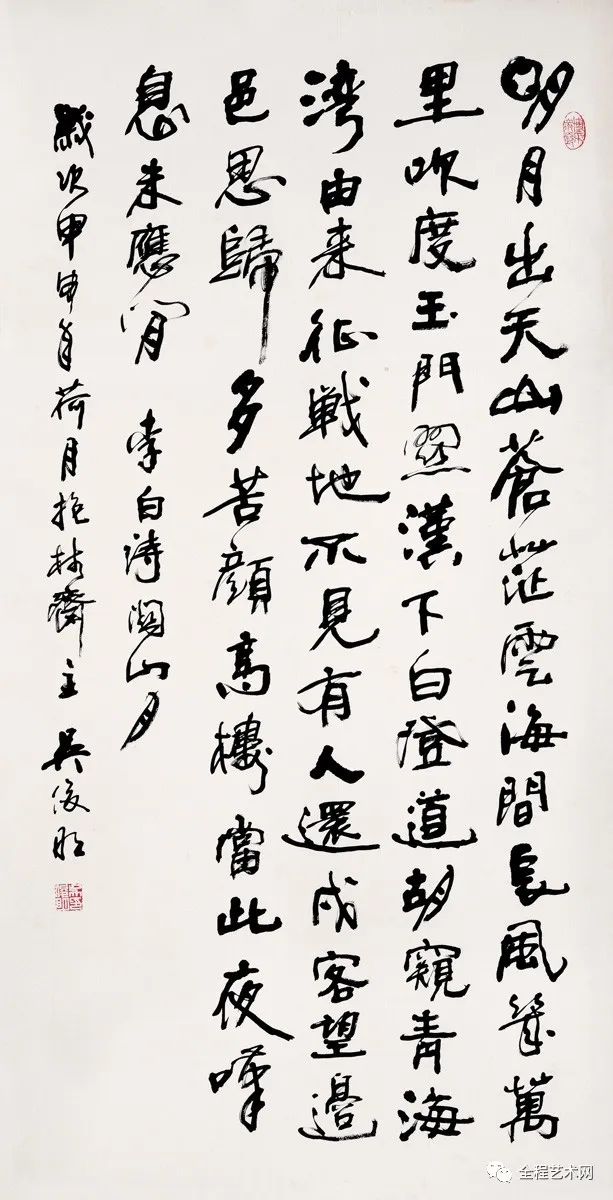 明月出天山蒼茫雲海間長風幾萬
里吹度玉門漢下白登道胡窺青海
湾由来征戰地不見有人還戍客望邊
邑思歸多苦顔高樓當此夜嘆
息未應閒 李白詩關山月
歲次甲申年荷月抱林齋主 吳俊明
全程艺术网